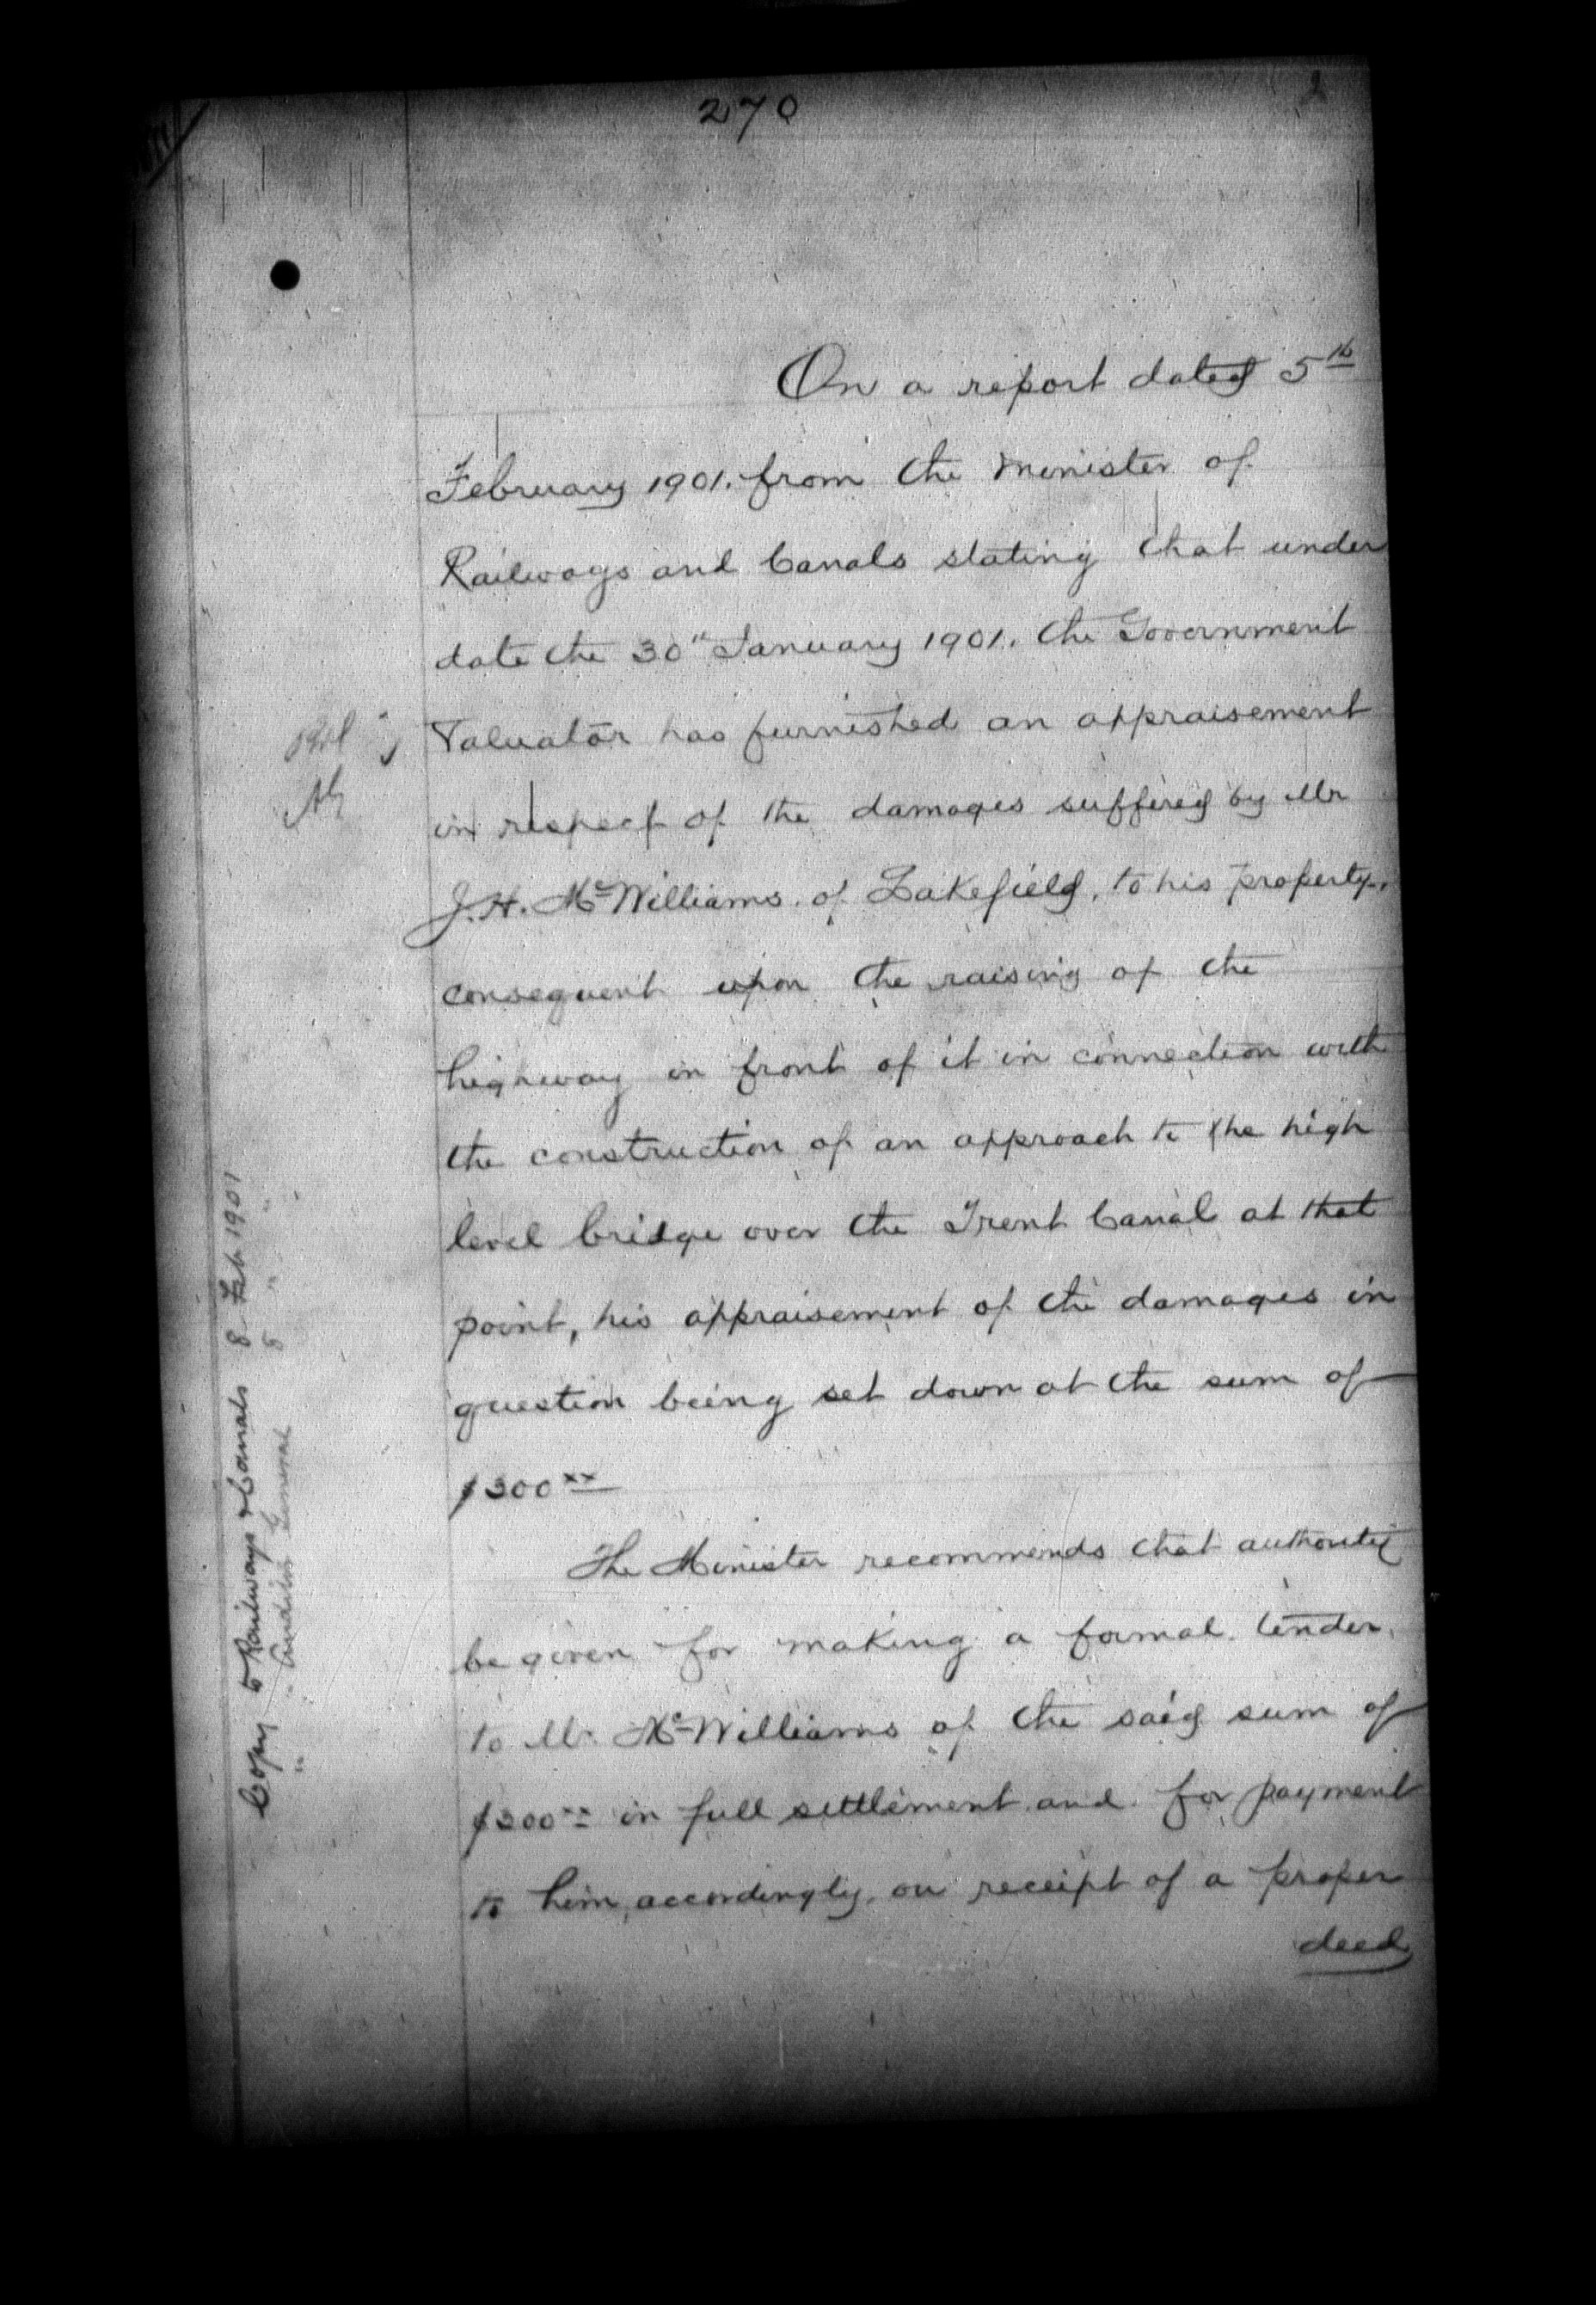 270
2
On a report dated 5th
February 1901. from the Minister of
Railways and Canals stating that under
date the 30" January 1901. the Government
Valuator has furnished an appraisement
in respect of the damages suffered by Mr
J.H. McWilliams. of Lakefield, to his property,
consequent upon the raising of the
highway in front of it in connection with
the construction of an approach to the high
level bridge over the Trent Canal at that
point, his appraisement of the damages in
question being set down at the sum of
$300 xx
The Minister recommends that authority
be given for making a formal tender
to Mr. McWilliams of the said sum of
$300 xx in full settlement and for payment
to him, accordingly, on receipt of a proper
deed
Copy to Railways & Canals 8 Feb 1901
" " Auditor General 8 " "